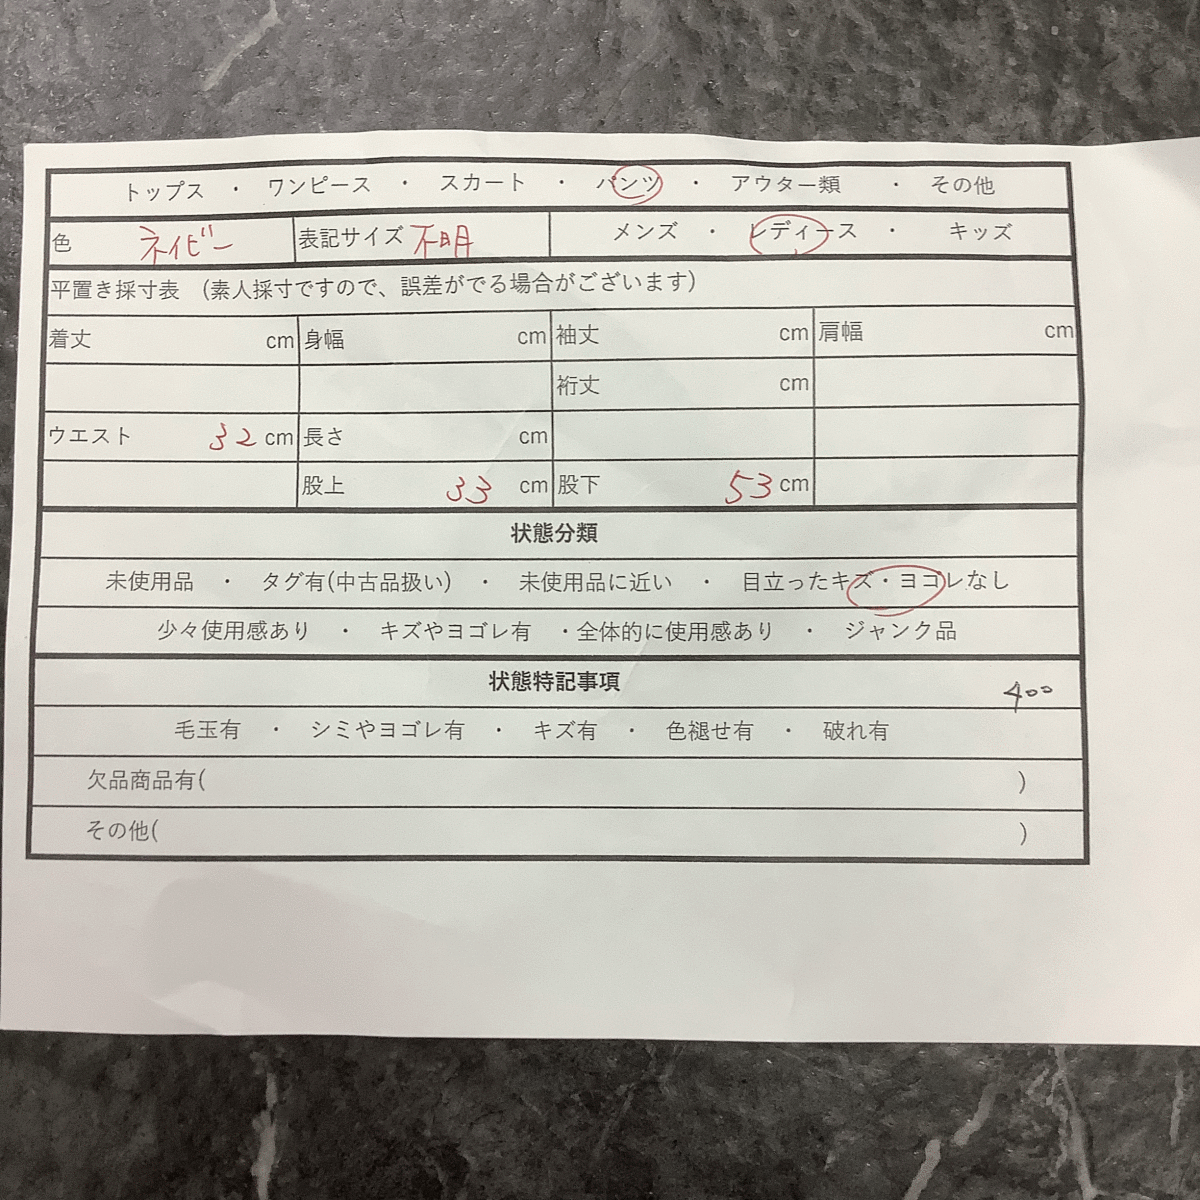 トップス ・ ワンピース ・ スカート ・ パンツ ・ アウター類 ・ その他
色 ネイビー 表記サイズ 不明 メンズ ・ レディース ・ キッズ
平置き採寸表 (素人採寸ですので、誤差がでる場合がございます)
着丈 cm 身幅 cm 袖丈 cm 肩幅 cm
裄丈 cm
ウエスト 32 cm 長さ cm
股上 33 cm 股下 53 cm
状態分類
未使用品 ・ タグ有(中古品扱い) ・ 未使用品に近い ・ 目立ったキズ・ヨゴレなし
少々使用感あり ・ キズやヨゴレ有 ・全体的に使用感あり ・ ジャンク品
状態特記事項 400
毛玉有 ・ シミやヨゴレ有 ・ キズ有 ・ 色褪せ有 ・ 破れ有
欠品商品有( )
その他( )